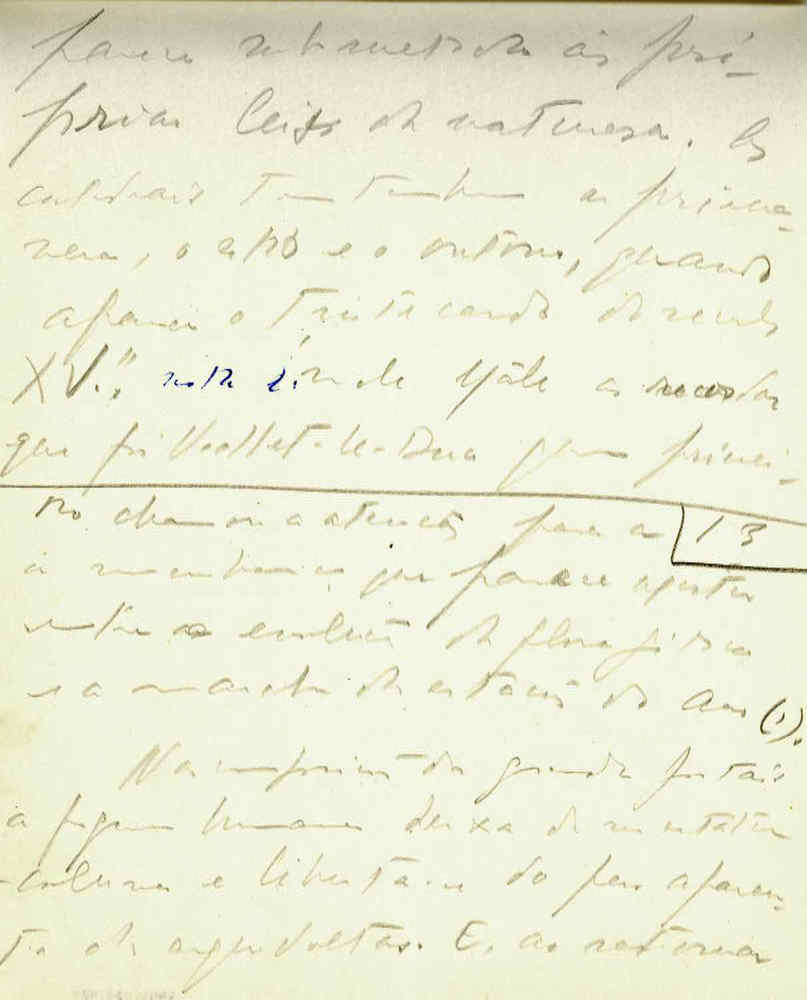 parece submetida às pró-
prias leis da natureza. As
catedrais tem tambem a prima-
vera, o estio e o outono, quando
aparece o triste cardo do seculo
XV.", nota Émile Mâle ao recordar
que foi Viollet-le-Duc quem primei-
ro chamou a atenção para a 13
semelhança que parece existir
entre a evolução da flora gótica
e a marcha das estações do ano (1).
Na imprimadura grandes portais
a figura humana deixa de ser estátua
-coluna e liberta-se do peso aparen-
te das arquivoltas. E, ao retomar